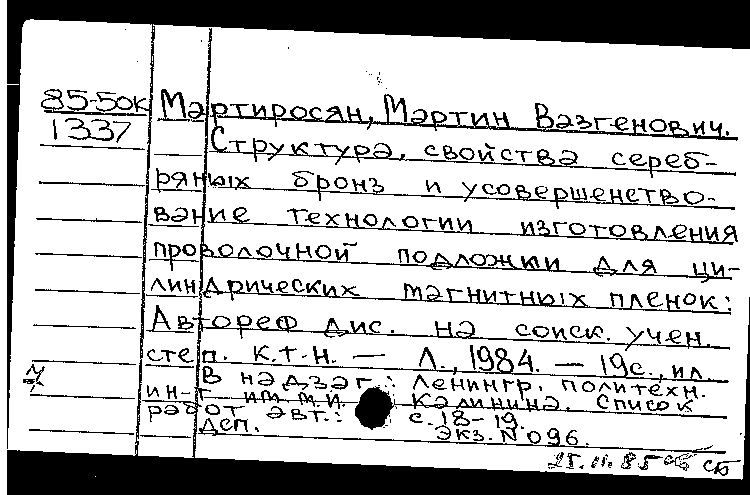 85-50к Мартиросян, Мартин Вазгенович.
1337 Структура, свойства сереб-
ряных бронз и усовершенство-
вание технологии изготовления
проволочной подложки для ци-
линдрических магнитных пленок:
Автореф дис. на соиск. учен.
степ. к.т.н. — Л., 1984. — 19с., ил.
В надзаг.: Ленингр. политехн.
ин-т им. М.И. Калинина. Список
работ авт.: с. 18-19.
ДСП. Экз. N 096.
25.11.85